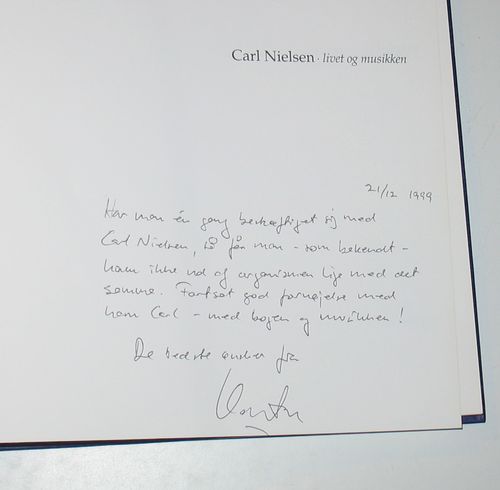 Carl Nielsen · livet og musikken
21/12 1999
Har man én gang beskæftiget sig med
Carl Nielsen, så får man - som bekendt -
ham ikke ud af organismen lige med det
samme. Fortsat god fornøjelse med
ham Carl - med bogen og musikken !
De bedste ønsker fra